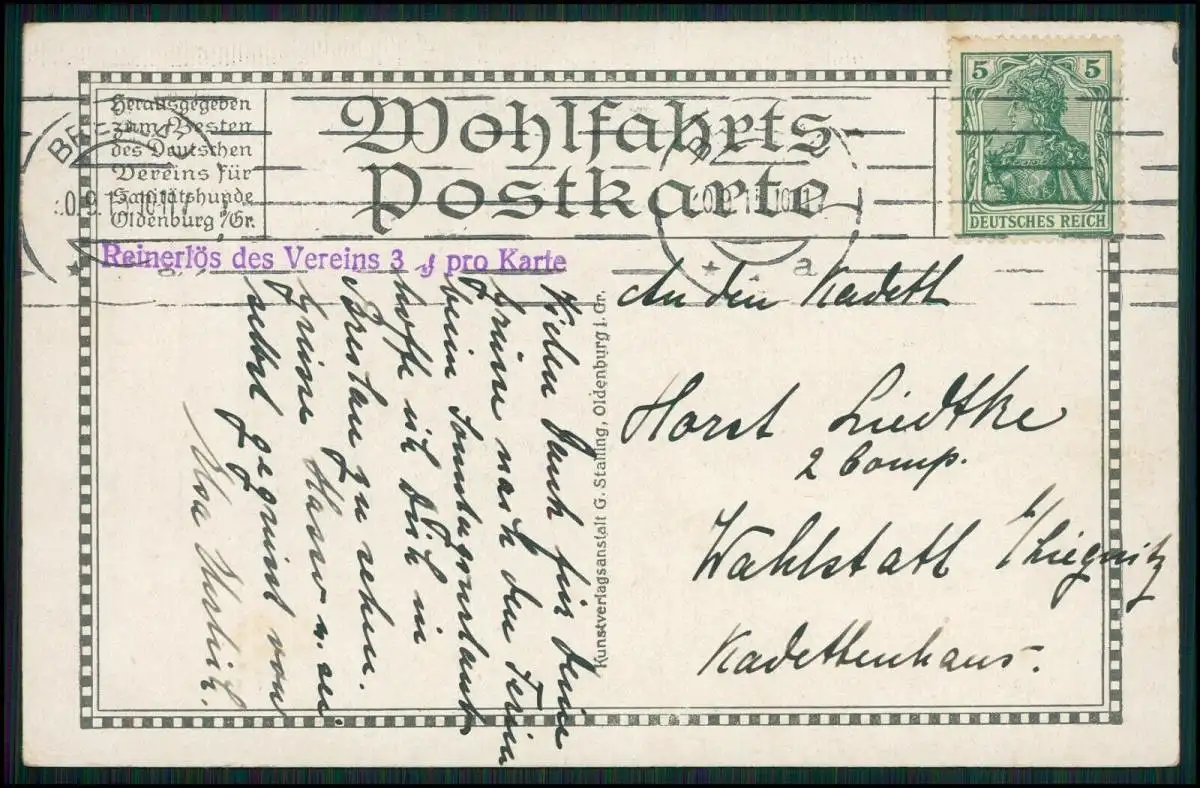 Herausgegeben
zum Besten
des Deutschen
Vereins für
Sanitätshunde
Oldenburg i/Gr.
Wohlfahrts-
Postkarte
5 5
DEUTSCHES REICH
Reinerlös des Vereins 3 ₰ pro Karte
An den Kadett
Horst Liedtke
2 Comp.
Wahlstatt b/Liegnitz
Kadettenhaus.
Kunstverlagsanstalt G. Stalling, Oldenburg i. Gr.
Vielen Dank für Deine
Grüsse nach den Ferien
beim Sonntagsurlaub
hoffe ich Dich in
Breslau zu sehen.
Grüsse Hasso u. sei
selbst gegrüsst von
Ilsa